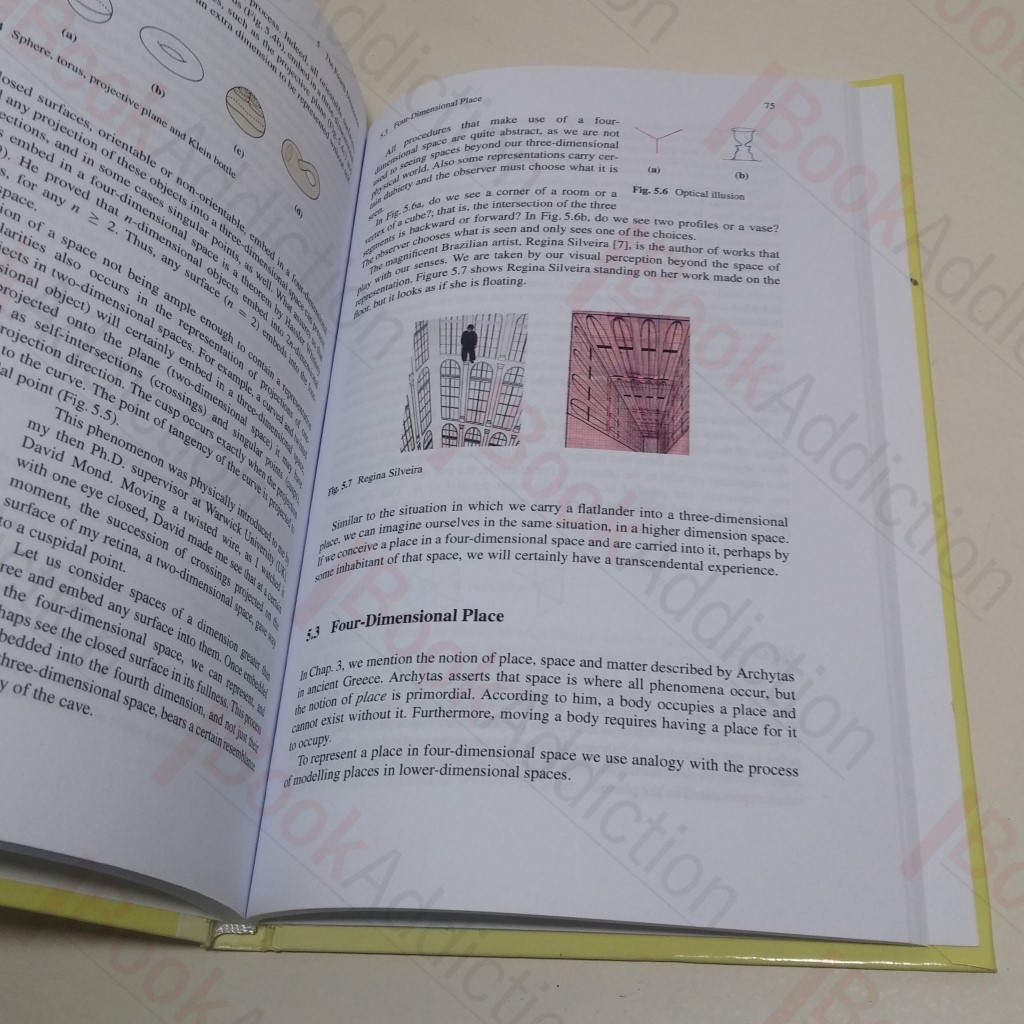 process. Indeed, all
(Fig. 5.4b), embed in
such as the projective plane
an extra dimension to be represented
(a)
(b)
(c)
(d)
Sphere, torus, projective plane and Klein bottle
losed surfaces, orientable or non-orientable, embed in a four-
any projection of these objects into a three-dimensional space
ections, and in some cases singular points, as well.
embed in a four-dimensional space is a theorem by Hassler
He proved that n-dimensional objects embed into 2n-dimensional
for any n ≥ 2. Thus, any surface (n = 2) embeds into
space.
ion of a space not being ample enough to contain a
larities also occurs in the representation of projections of
jects in two-dimensional spaces. For example, a curved and
sional object) will certainly embed in a three-dimensional space.
projected onto the plane (two-dimensional space) it may have
as self-intersections (crossings) and singular points
rojection direction. The cusp occurs exactly when the projection
to the curve. The point of tangency of the curve is projected
al point (Fig. 5.5).
This phenomenon was physically introduced to me by
my then Ph.D. supervisor at Warwick University (UK)
David Mond. Moving a twisted wire, as I watched it
with one eye closed, David made me see that at a certain
moment, the succession of crossings projected on the
surface of my retina, a two-dimensional space, gave way
to a cuspidal point.
Let us consider spaces of a dimension greater than
ree and embed any surface into them. Once embedded
the four-dimensional space, we can represent, and
haps see the closed surface in its fullness. This process
bedded into the fourth dimension, and not just their
three-dimensional space, bears a certain resemblance
y of the cave.
5.3 Four-Dimensional Place
75
All procedures that make use of a four-
dimensional space are quite abstract, as we are not
used to seeing spaces beyond our three-dimensional
physical world. Also some representations carry cer-
tain dubiety and the observer must choose what it is
seen.
(a)
(b)
Fig. 5.6 Optical illusion
In Fig. 5.6a, do we see a corner of a room or a
vertex of a cube?; that is, the intersection of the three
segments is backward or forward? In Fig. 5.6b, do we see two profiles or a vase?
The observer chooses what is seen and only sees one of the choices.
The magnificent Brazilian artist, Regina Silveira [7], is the author of works that
play with our senses. We are taken by our visual perception beyond the space of
representation. Figure 5.7 shows Regina Silveira standing on her work made on the
floor, but it looks as if she is floating.
Fig. 5.7 Regina Silveira
Similar to the situation in which we carry a flatlander into a three-dimensional
place, we can imagine ourselves in the same situation, in a higher dimension space.
If we conceive a place in a four-dimensional space and are carried into it, perhaps by
some inhabitant of that space, we will certainly have a transcendental experience.
5.3 Four-Dimensional Place
In Chap. 3, we mention the notion of place, space and matter described by Archytas
in ancient Greece. Archytas asserts that space is where all phenomena occur, but
the notion of place is primordial. According to him, a body occupies a place and
cannot exist without it. Furthermore, moving a body requires having a place for it
to occupy.
To represent a place in four-dimensional space we use analogy with the process
of modelling places in lower-dimensional spaces.
BookAddiction